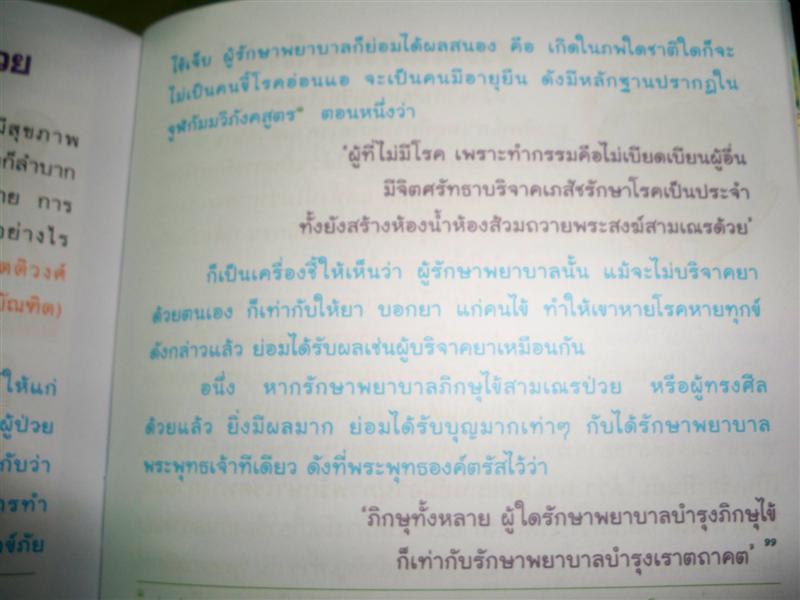 วย
มีสุขภาพ
งก็ลำบาก
าย การ
อย่างไร
ตติวงศ์
บัณฑิต)
ให้แก่
ผู้ป่วย
กับว่า
ารทำ
ย์ภัย
ไข้เจ็บ ผู้รักษาพยาบาลก็ย่อมได้ผลสนอง คือ เกิดในภพใดชาติใดก็จะ
ไม่เป็นคนขี้โรคอ่อนแอ จะเป็นคนมีอายุยืน ดังมีหลักฐานปรากฏใน
จูฬกัมมวิภังคสูตร ตอนหนึ่งว่า
'ผู้ที่ไม่มีโรค เพราะทำกรรมคือไม่เบียดเบียนผู้อื่น
มีจิตศรัทธาบริจาคเภสัชรักษาโรคเป็นประจำ
ทั้งยังสร้างห้องน้ำห้องส้วมถวายพระสงฆ์สามเณรด้วย'
ก็เป็นเครื่องชี้ให้เห็นว่า ผู้รักษาพยาบาลนั้น แม้จะไม่บริจาคยา
ด้วยตนเอง ก็เท่ากับให้ยา บอกยา แก่คนไข้ ทำให้เขาหายโรคหายทุกข์
ดังกล่าวแล้ว ย่อมได้รับผลเช่นผู้บริจาคยาเหมือนกัน
อนึ่ง หากรักษาพยาบาลภิกษุไข้สามเณรป่วย หรือผู้ทรงศีล
ด้วยแล้ว ยิ่งมีผลมาก ย่อมได้รับบุญมากเท่าๆ กับได้รักษาพยาบาล
พระพุทธเจ้าทีเดียว ดังที่พระพุทธองค์ตรัสไว้ว่า
'ภิกษุทั้งหลาย ผู้ใดรักษาพยาบาลบำรุงภิกษุไข้
ก็เท่ากับรักษาพยาบาลบำรุงเราตถาคต' ๑๑